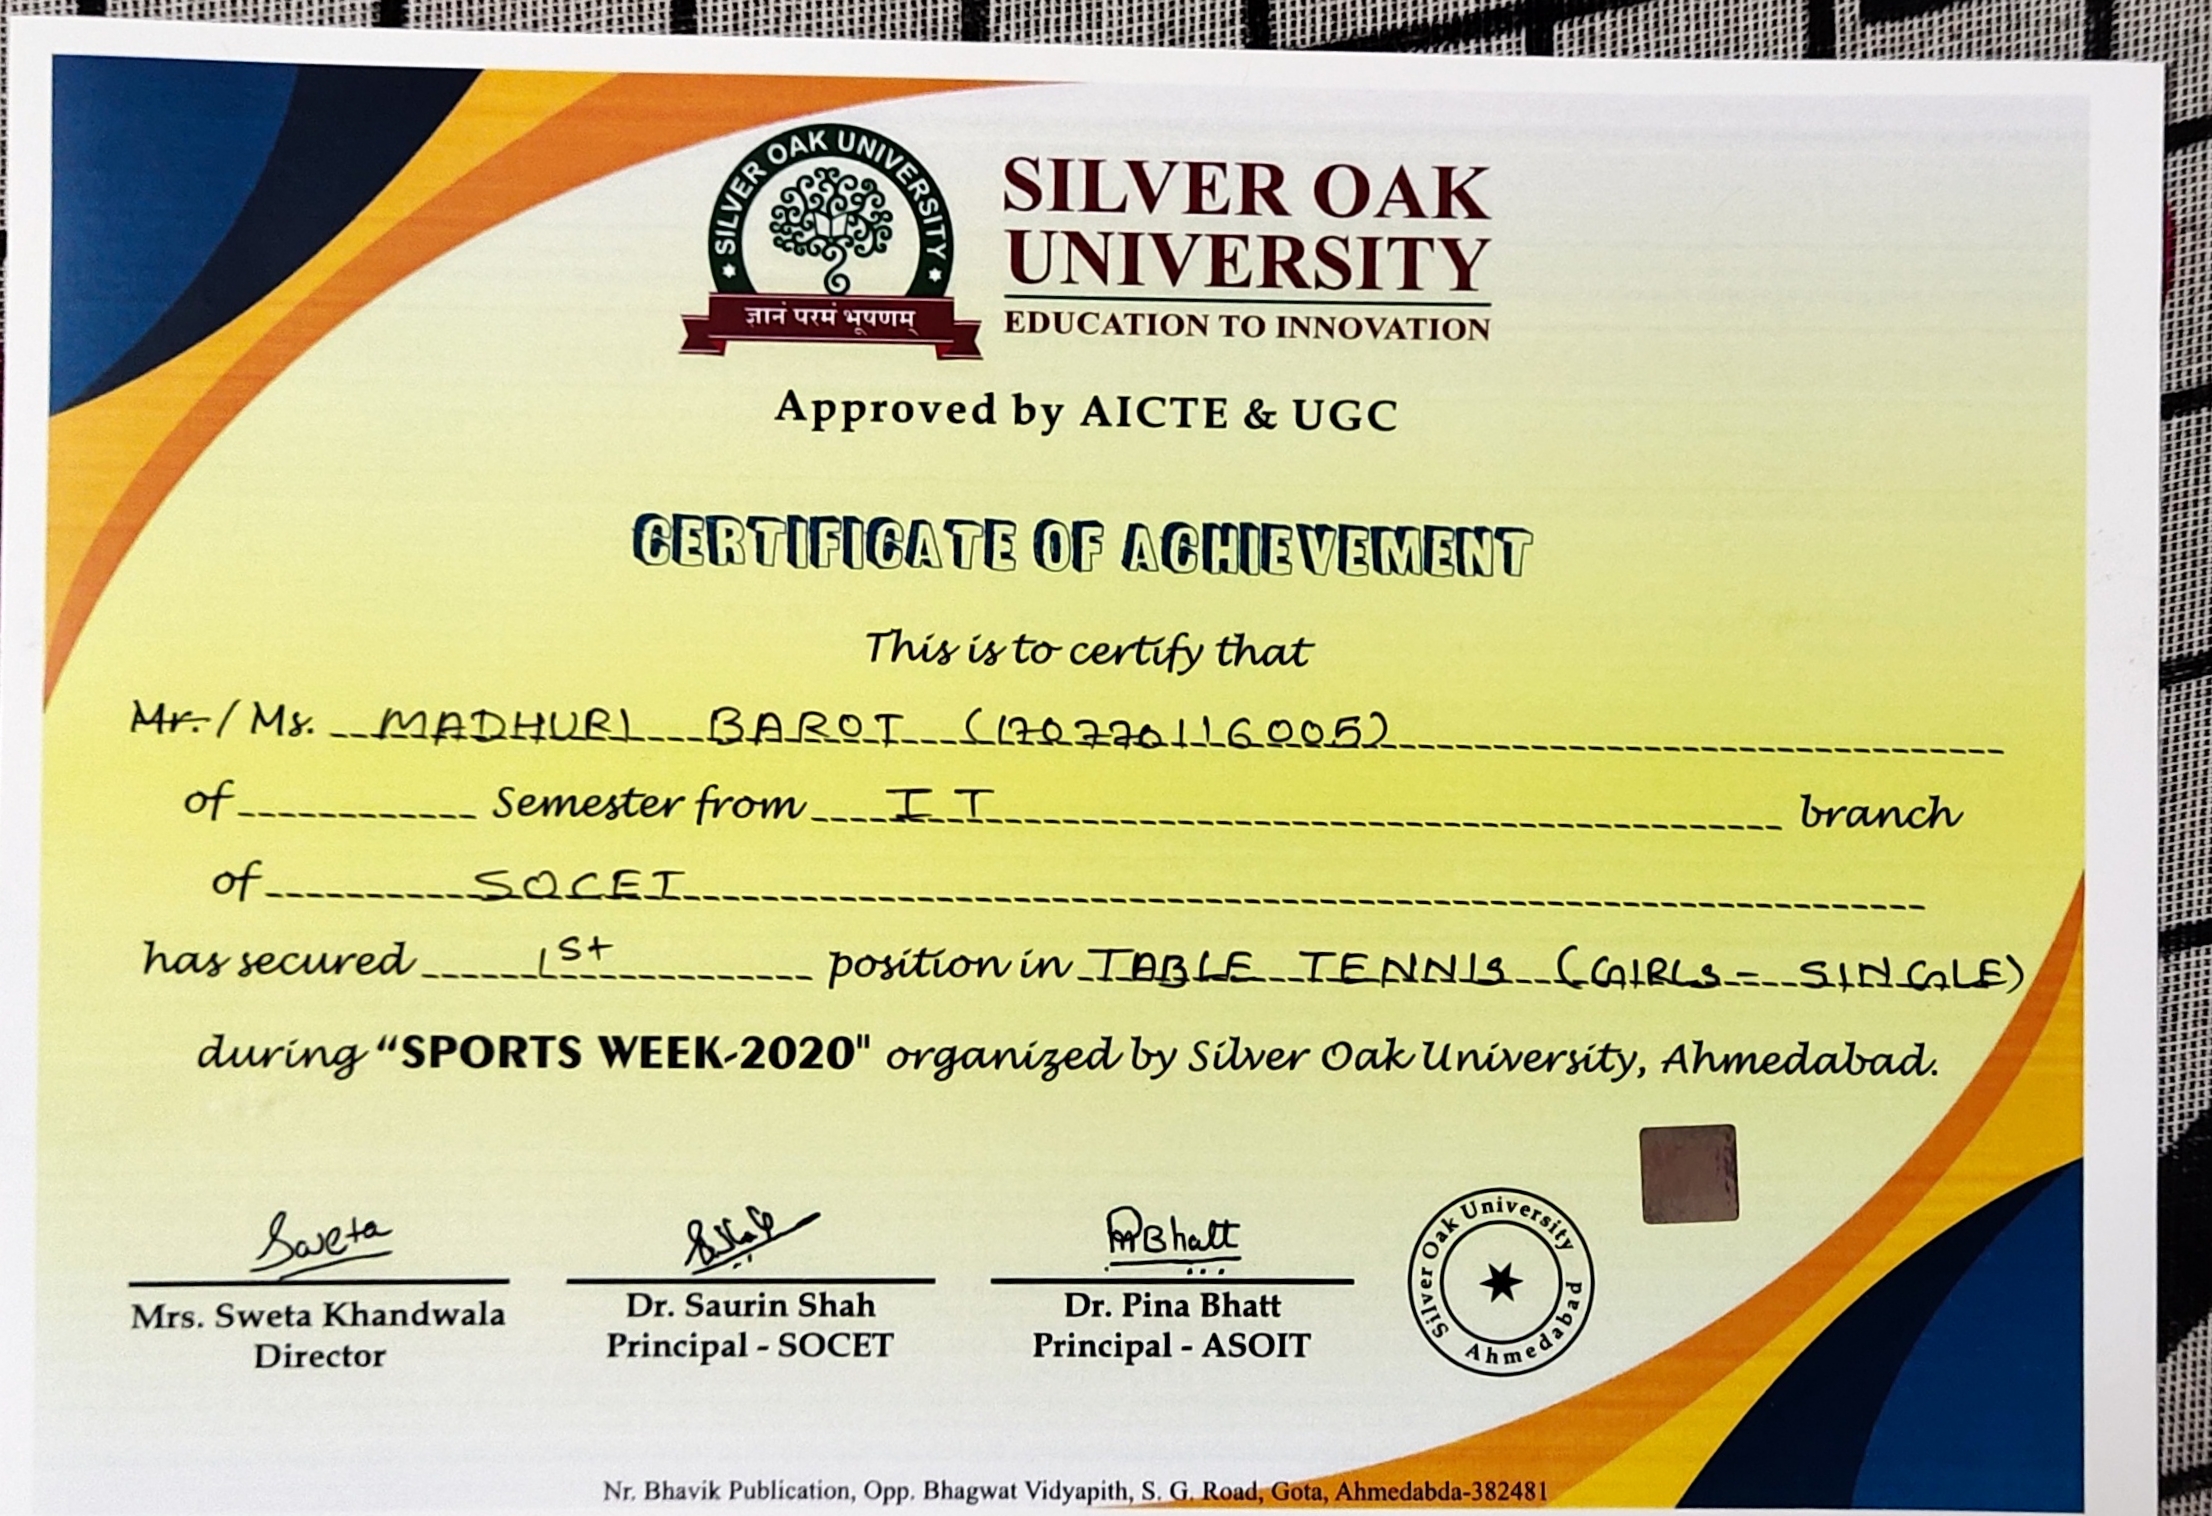 SILVER OAK UNIVERSITY
ज्ञानं परमं भूषणम्
SILVER OAK
UNIVERSITY
EDUCATION TO INNOVATION
Approved by AICTE & UGC
CERTIFICATE OF ACHIEVEMENT
This is to certify that
Mr. / Ms. MADHURI BAROT (170770116005)
of Semester from IT branch
of SOCET
has secured 1st position in TABLE TENNIS (GIRLS = SINGLE)
during “SPORTS WEEK-2020" organized by Silver Oak University, Ahmedabad.
Sweta
PBhatt
Mrs. Sweta Khandwala
Director
Dr. Saurin Shah
Principal - SOCET
Dr. Pina Bhatt
Principal - ASOIT
Silver Oak University
Ahmedabad
Nr. Bhavik Publication, Opp. Bhagwat Vidyapith, S. G. Road, Gota, Ahmedabda-382481